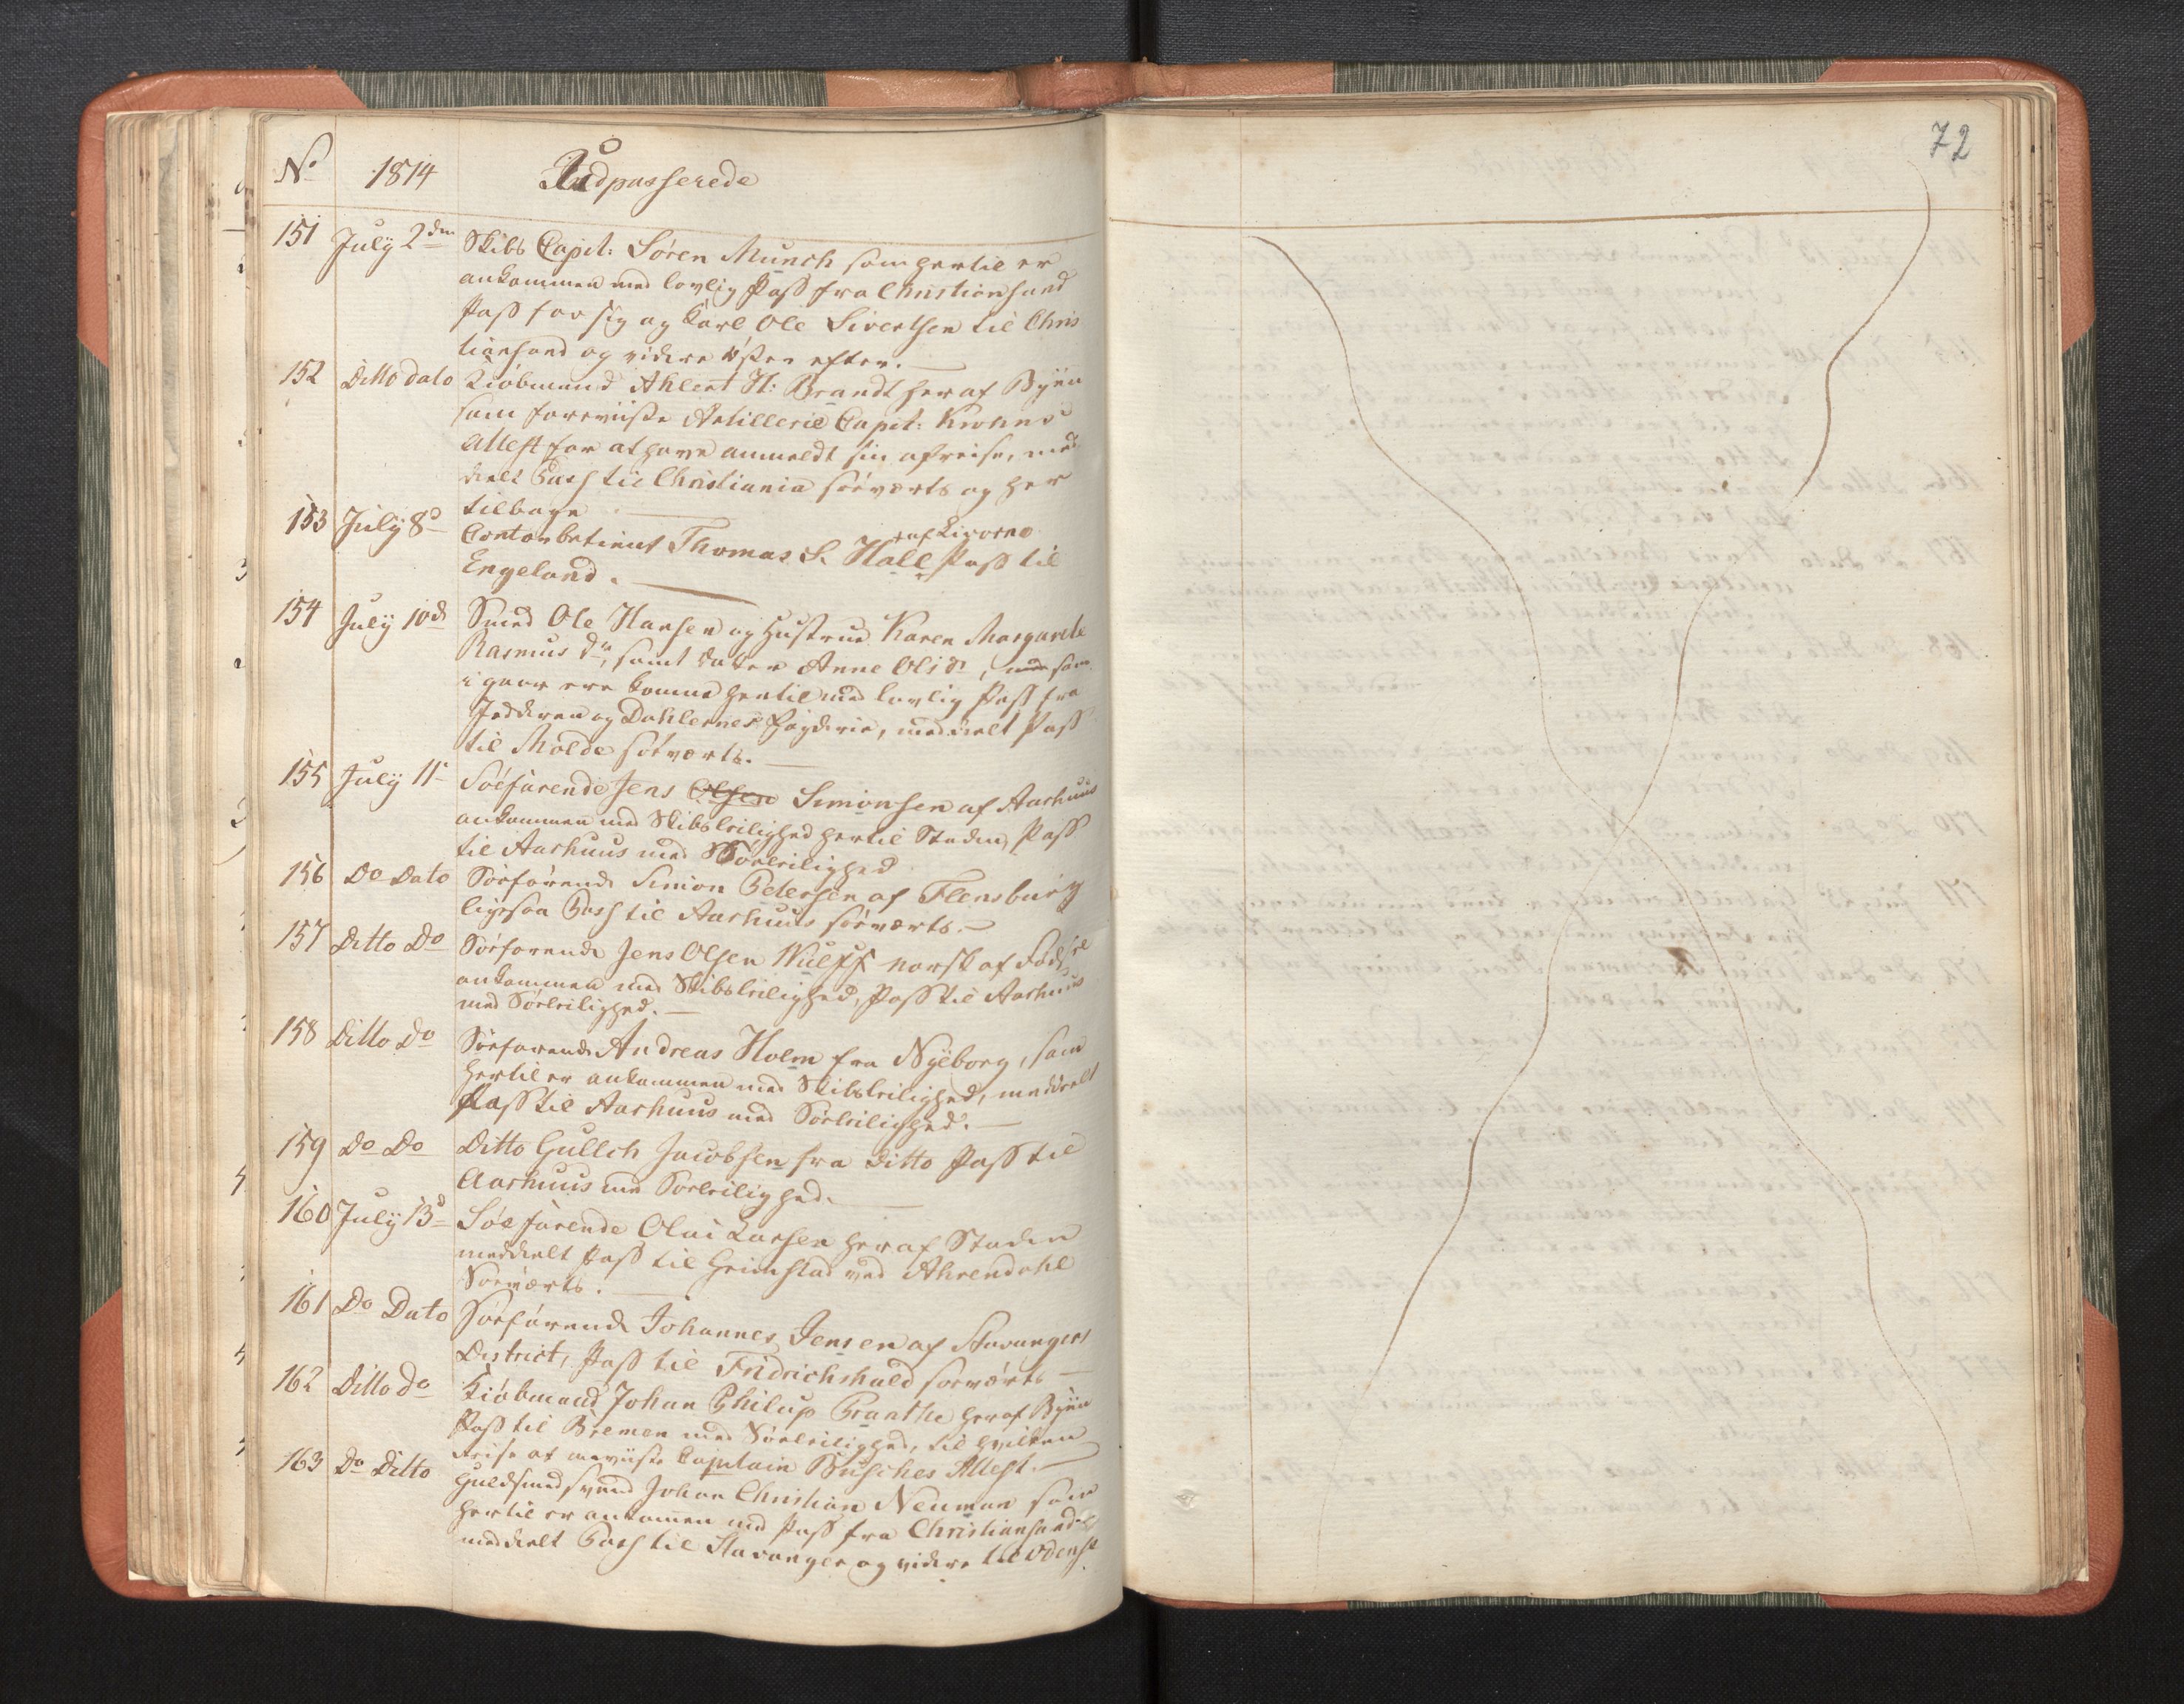 72
No 1814 Udpasserede
151 July 2den Skibs Capit: Søren Munch som hertil er
ankommen med lovlig Pass fra Christiansand
Pass for sig og Karl Ole Sivertsen til Chris
tiansand og videre øster efter.
152 Ditto dato Kiøbmand Ahlert H: Brandt her af Byen
som foreviiste Artillerie Capit: Krohns
Attest for at have anmeldt sin afreise, med
deelt Pass til Christiania søeværts og her
tilbage
153 July 8d Contorbetient Thomas S. Hall af Livorno Pass til
Engeland.
154 July 10d Smed Ole Hansen og Hustrue Karen Margarete
Rasmus dr, samt Datter Anne Olsdr, som
i gaar ere komne hertil med lovlig Pass fra
Jedderen og Dahlernes Fogderie, meddeelt Pass
til Molde søeværts.
155 July 11 Søefarende Jens Olsen Simonsen af Aarhuus
ankommen med Skibsleilighed hertil Staden, Pass
til Aarhuus med Søeleilighed
156 Do Dato Søefarende Simon Petersen af Flensburg
ligesaa Pass til Aarhuus søeværts.
157 Ditto Do Søefarende Jens Olsen Wulff norsk af Fødsel
ankommen med Skibsleilighed, Pass til Aarhuus
med Søeleilighed.
158 Ditto Do Søefarende Andreas Holm fra Nyeborg, som
hertil er ankommen med Skibsleilighed, meddeelt
Pass til Aarhuus med Søeleilighed.
159 Do Do Ditto Gullch Jacobsen fra Ditto Pass til
Aarhuus med Søeleilighed.
160 July 13d Søefarende Olai Larsen her af Staden
meddeelt Pass til Grimstad ved Ahrendahl
Søeværts.
161 Do Dato Søefarende Johannes Jensen af Stavangers
District, Pass til Fridrichshald søeværts
162 Ditto do Kiøbmand Johan Philip Granthe her af Byen
Pass til Bremen med Søeleilighed, til hvilken
Reise at Capitain Busches Attest.
163 Do Ditto Guldsmedsvend Johan Christian Neuman som
hertil er ankommen med Pass fra Christiansand
meddeelt Pass til Stavanger og videre til Odense